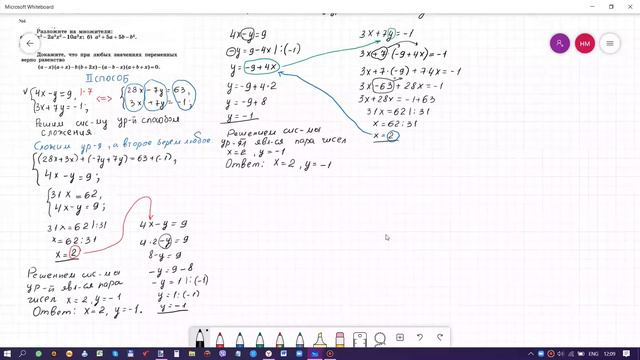 Microsoft Whiteboard
Разложите на множители:
Докажите, что при любых значениях переменных
верно равенство
(a−x)(a+x)−b(b+2x)−(a−b−x)(a+b+x)=0.
II способ
{4x−y=9, |·7
3x+7y=−1;
<=>
{28x−7y=63,
3x+7y=−1;
Решим сис-му ур-й способом
сложения.
Сложим ур-я, а второе берем любое.
{(28x+3x)+(−7y+7y)=63+(−1),
4x−y=9;
{31x=62,
4x−y=9;
31x=62|:31
x=62:31
x=2
Решением сис-мы
ур-й явл-ся пара
чисел x=2, y=−1
Ответ: x=2, y=−1.
4x−y=9
4·2−y=9
8−y=9
−y=9−8
−y=1|:(−1)
y=1:(−1)
y=−1
4x−y=9
−y=9−4x|:(−1)
y=−9+4x
y=−9+4·2
y=−9+8
y=−1
Решением сис-мы
ур-й явл-ся пара чисел
x=2, y=−1
Ответ: x=2, y=−1
3x+7y=−1
3x+7·(−9+4x)=−1
3x+7·(−9)+7·4x=−1
3x−63+28x=−1
3x+28x=−1+63
31x=62|:31
x=62:31
x=2
HM
ENG
12:09